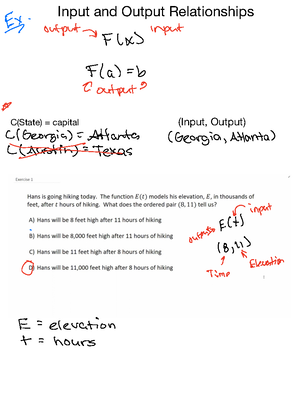 Ex. Input and Output Relationships
output → F(x) input
F(a) = b
output
C(State) = capital (Input, Output)
C(Georgia) = Atlanta (Georgia, Atlanta)
C(Austin) = Texas
Exercise 1
Hans is going hiking today. The function E(t) models his elevation, E, in thousands of
feet, after t hours of hiking. What does the ordered pair (8, 11) tell us?
A) Hans will be 8 feet high after 11 hours of hiking
B) Hans will be 8,000 feet high after 11 hours of hiking
C) Hans will be 11 feet high after 8 hours of hiking
D) Hans will be 11,000 feet high after 8 hours of hiking
input
output E(t)
(8, 11)
Time Elevation
E = elevation
t = hours